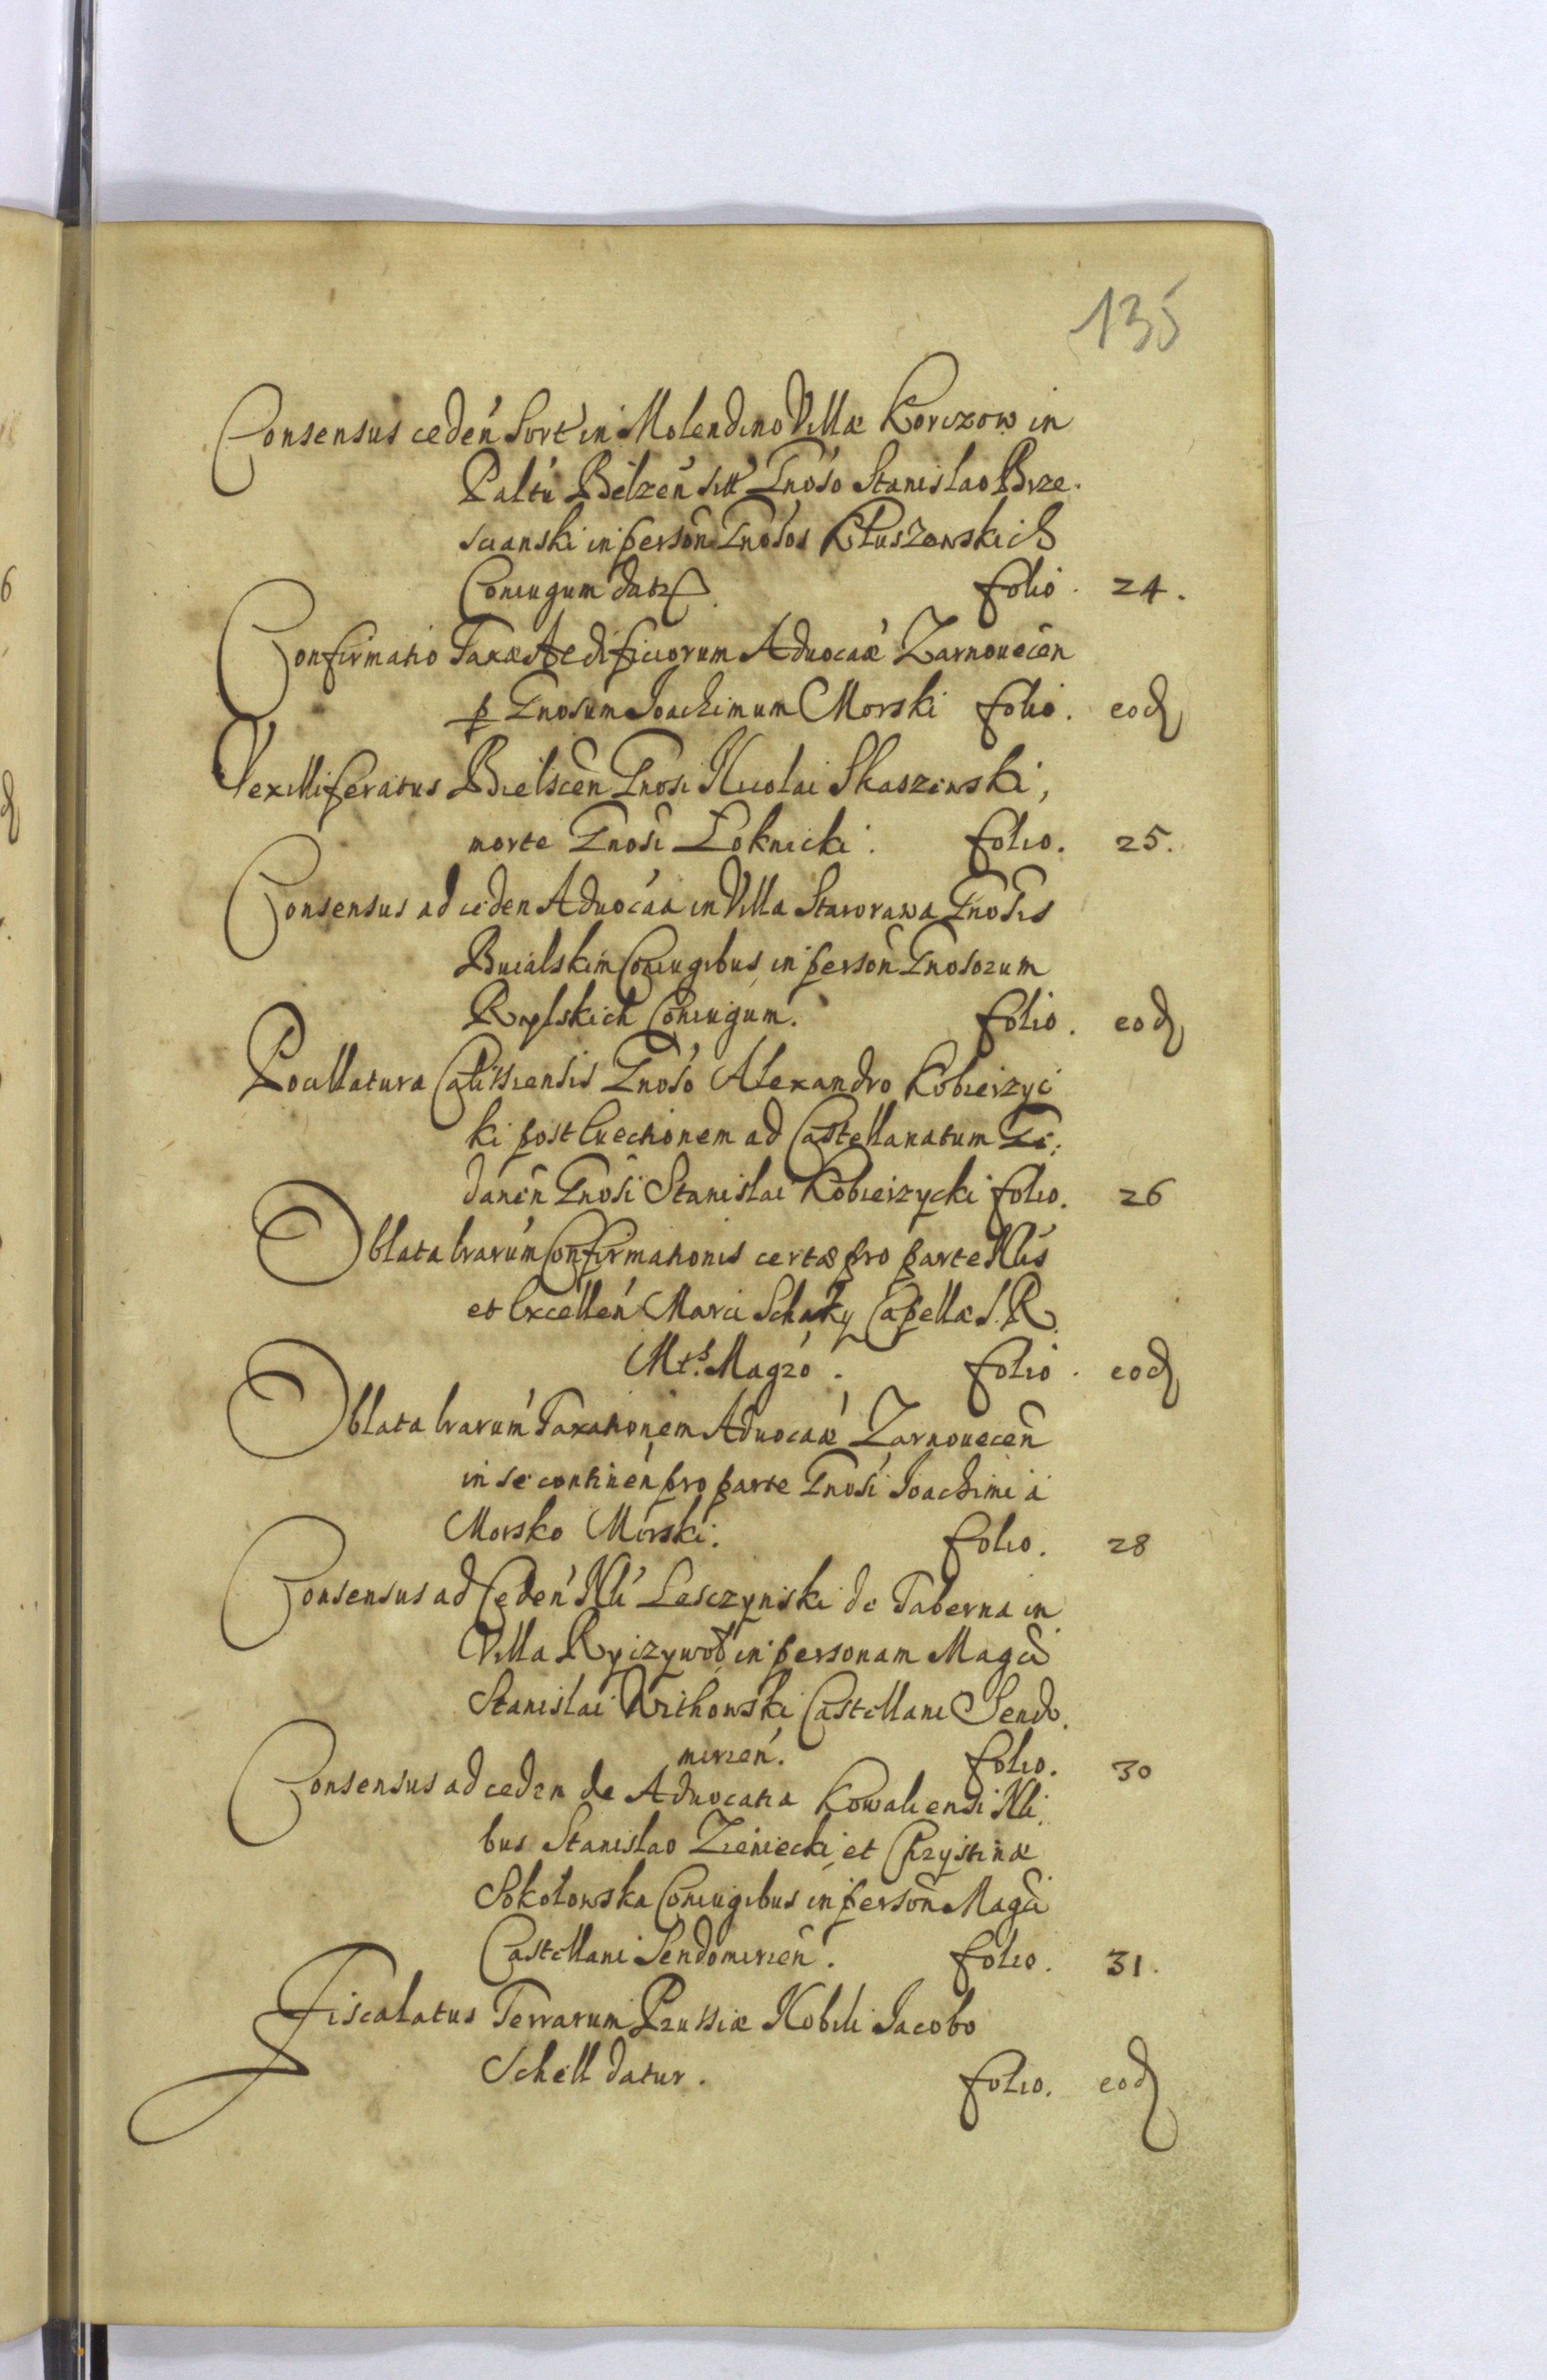 135
Consensus ceden̄ Sort in Molendino Villæ Korczow in
Paltú Belzen̄ sitt Gnoso Stanislao Brze.
scianski in person̄ Gnosos Kluszewskich
Coniugum datr. folio. 24.
Confirmatio Taxæ Aedificiorum Aduocaæ Zarnouecen̄
p Gnosum Joachimum Morski folio. eod
Vexilliferatus Bielscen̄ Gnosi Nicolai Skaszewski,
morte Gnosi Loknicki. folio. 25.
Consensus ad ceden Aduocáa in Villa Starorawa Gnosis
Coniugibus in person̄ Gnosorum
Rylskich Coniugum. folio. eod
Pocillatura Calissiensis Gnoso Alexandro Kobierzyc
ki post Euectionem ad Castellanatum Ge,
danen̄ Gnosi Stanislai Kobierzycki folio. 26
Oblata lrarum Confirmationis certæ pro parte Nlis
et Excellen̄ Marci Schaky Capellæ S. R.
Mts. Magro. folio. eod
Oblata lrarum Taxationem Aduocaæ Zarnouecen̄
in se continen̄ pro parte Gnosi Joachimi á
Morsko Morski. folio. 28
Consensus ad Ceden̄ Nli Lesczynski de Taberna in
Villa Ryczywoł in personam Magci
Stanislai Witkowski Castellani Sendo.
mirien̄. folio. 30
Consensus ad ceden de Aduocatia Kowaliensi Nli.
bus Stanislao Zieniecki et Chrystinæ
Sokołowska Coniugibus in person̄ Magci
Castellani Sendomirien̄. folio. 31.
Fiscalatus Terrarum Prussiæ Nobili Jacobo
Schell datur. folio. eod